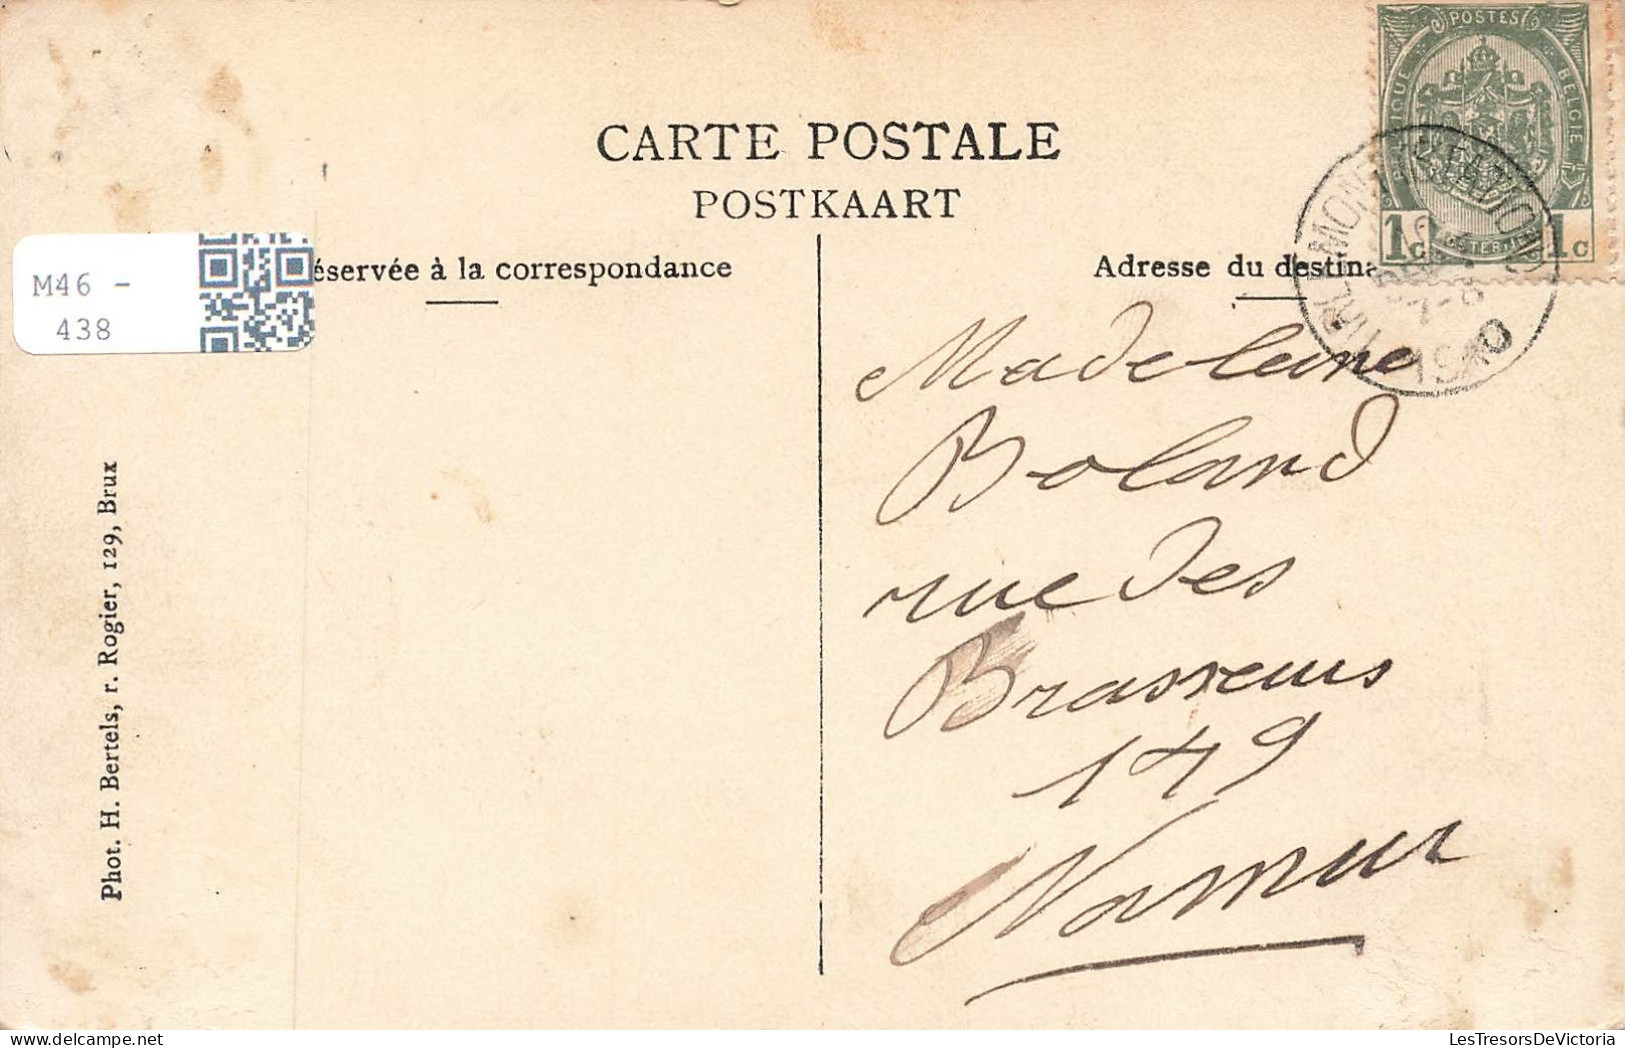 POSTES
BELGIQUE
BELGIE
1c
1c
CARTE POSTALE
POSTKAART
éservée à la correspondance
Adresse du destina
M46 -
438
TIRLEMONT (STATION)
7-8
1910
Madeleine
Boland
rue des
Brasseurs
149
Namur
Phot. H. Bertels, r. Rogier, 129, Brux
LesTresorsDeVictoria